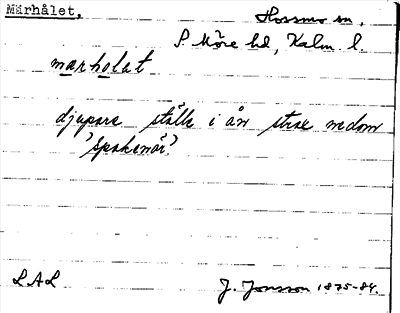 Märhålet,
Hossmo sn,
S Möre hd, Kalm l.
marholat
djupare ställe i ån strax nedom
'Spakenär'
LAL
J. Jonsson 1875-84.